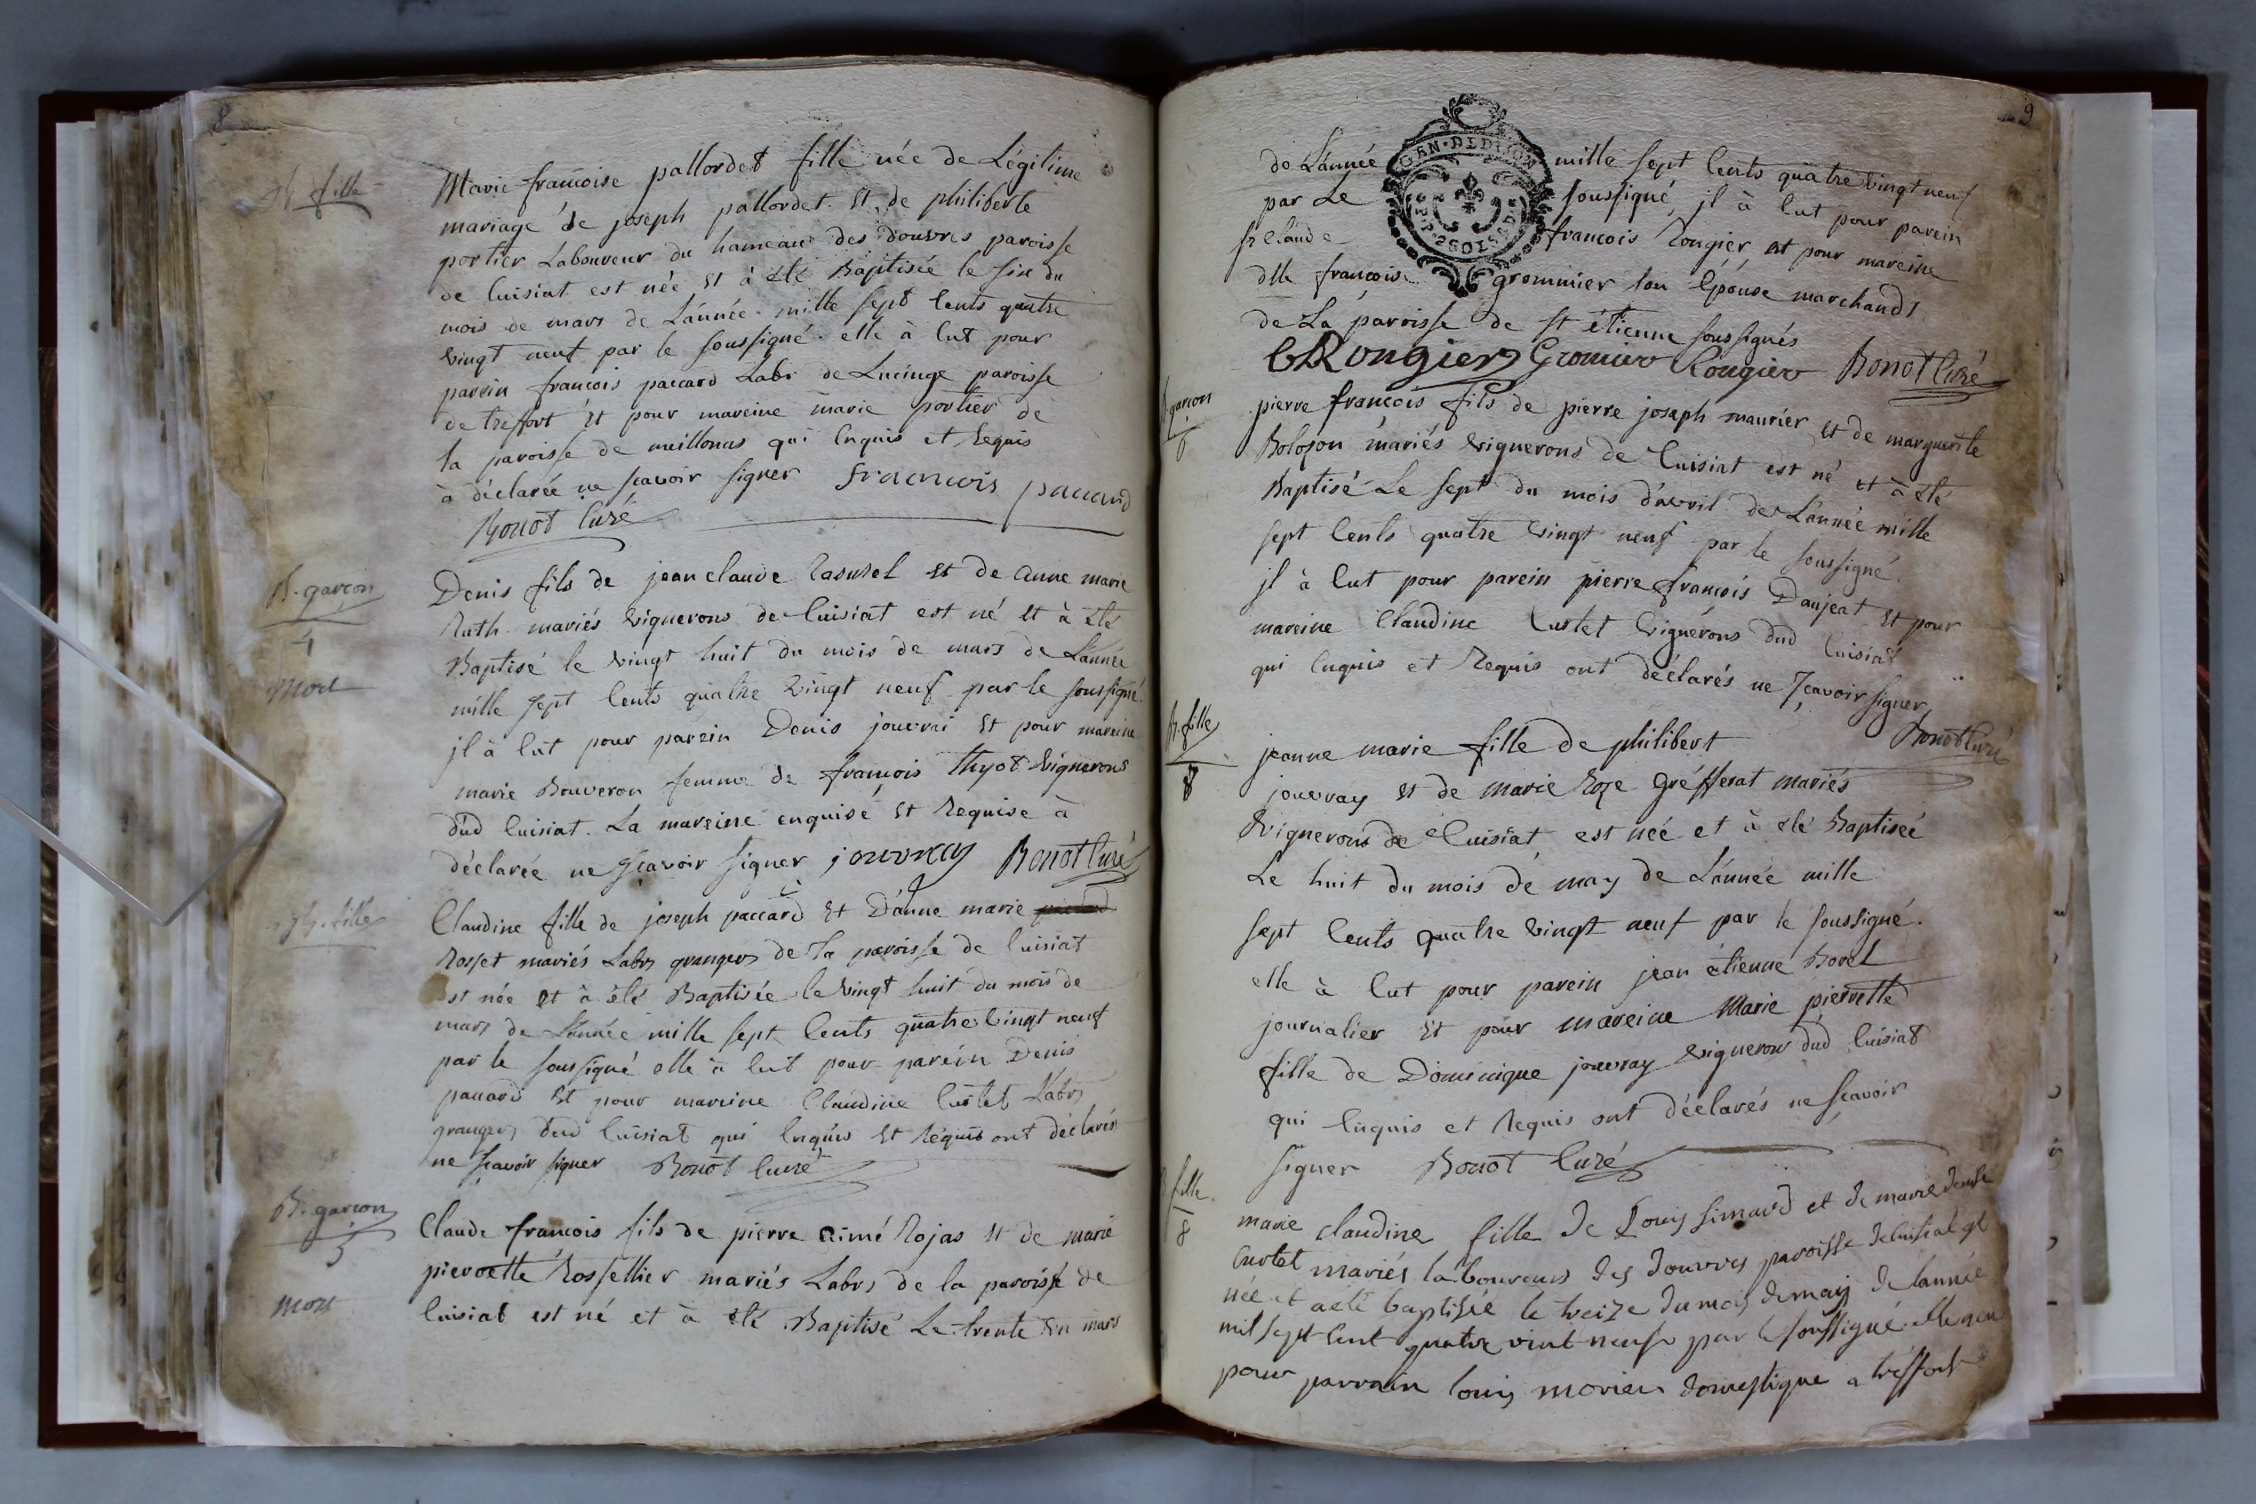 8
B. fille
Marie francoise pallordet fille née de Légitime
mariage de joseph pallordet. Et de philiberte
portier Laboureur du hameau des douvres paroisse
de Cuisiat est née Et à été Baptisée le six du
mois de mars de L'année mille sept Cents quatre
vingt neuf par le soussigné. elle à Eut pour
parein francois paccard Labr de Lucinge paroisse
de treffort Et pour mareine marie portier de
la paroisse de meillonas qui Enquis et Requis
à déclarée ne scavoir signer francois paccard
Bonot Curé
B. garcon
4
Mort
Denis fils de jean claude Et de Anne marie
Ruth mariés vignerons de Cuisiat est né Et à été
Baptisé le vingt huit du mois de mars de L'année
mille sept Cents quatre vingt neuf par le soussigné.
jl à Eut pour parein Denis jouvrai Et pour mareine
marie Bouveron femme de françois thyot vignerons
dud Cuisiat. La mareine enquise Et Requise à
déclarée ne scavoir signer jouvray Bonot Curé
B. fille
Claudine fille de joseph paccard Et D'anne marie
Rosset mariés Labrs grangers de la paroisse de Cuisiat
est née et à été Baptisée le vingt huit du mois de
mars de L'année mille sept Cents quatre vingt neuf
par le soussigné elle à Eut pour parein Denis
paccard Et pour mareine Claudine Curtet Labrs
grangers dud Cuisiat qui Enquis Et Réquis ont déclarés
ne scavoir signer Bonot Curé
B. garcon
5
Mort
Claude francois fils de pierre aimé Rojas Et de marie
pierrette Rossellier mariés Labrs de la paroisse de
Cuisiat est né et à été Baptisé Le trente un mars
9
GEN. DE DIJON
de L'année mille sept Cents quatre vingt neuf
par Le soussigné, jl à Eut pour parein
sr Claude francois Rougier, et pour mareine
dlle francoise grommier son Epouse marchands
de La paroisse de st étienne soussignés
C Rougier Gromier Rougier Bonot Curé
B. garcon
6
pierre francois fils de pierre joseph maurier Et de marguerite
Bolozon mariés vignerons de Cuisiat est né et à été
Baptisé Le sept du mois d'avril de L'année mille
sept Cents quatre vingt neuf par le soussigné.
jl à Eut pour parein pierre françois Danjeat Et pour
mareine Claudine Curtet vignerons dud Cuisiat
qui Enquis et Requis ont déclarés ne scavoir signer
Bonot Curé
B. fille
jeanne marie fille de philibert
jouvray Et de marie Roze Grefferat mariés
vignerons de Cuisiat est née et à été Baptisée
Le huit du mois de may de L'année mille
sept Cents quatre vingt neuf par le soussigné.
elle à Eut pour parein jean étienne Borel
journalier Et pour mareine Marie pierrette
fille de Dominique jouvray vigneron dud Cuisiat
qui Enquis et Requis ont déclarés ne scavoir
signer Bonot Curé
fille
8
marie claudine fille de Louis simard et de marie denise
Curtet mariés laboureurs des douvres paroisse de Cuisiat est
née et a été baptisée le treize du mois de may de lannée
mil sept Cent quatre vint neuf par le soussigné elle a eu
pour parrain louis morier domestique a treffort